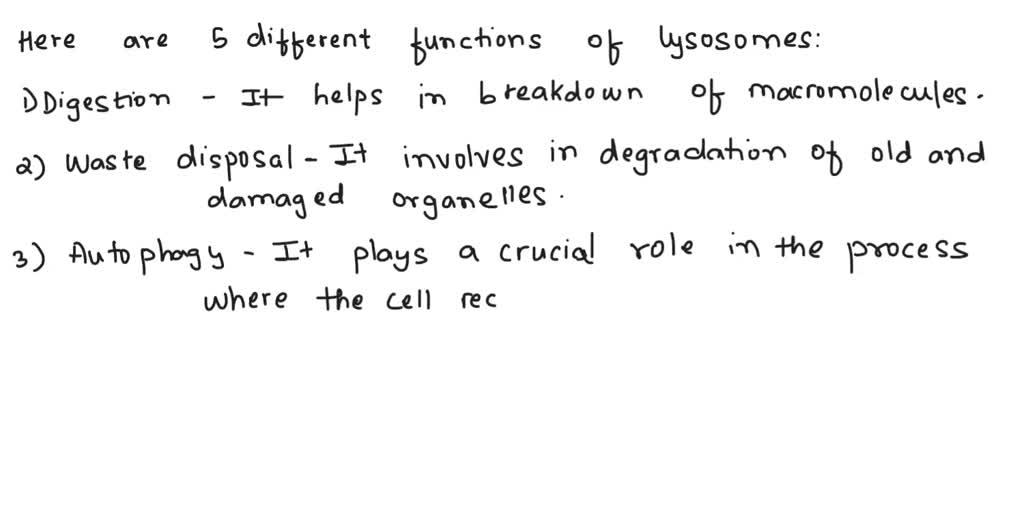 Here are 5 different functions of lysosomes:
1) Digestion - It helps in breakdown of macromolecules.
2) Waste disposal - It involves in degradation of old and
damaged organelles.
3) Autophagy - It plays a crucial role in the process
where the cell rec